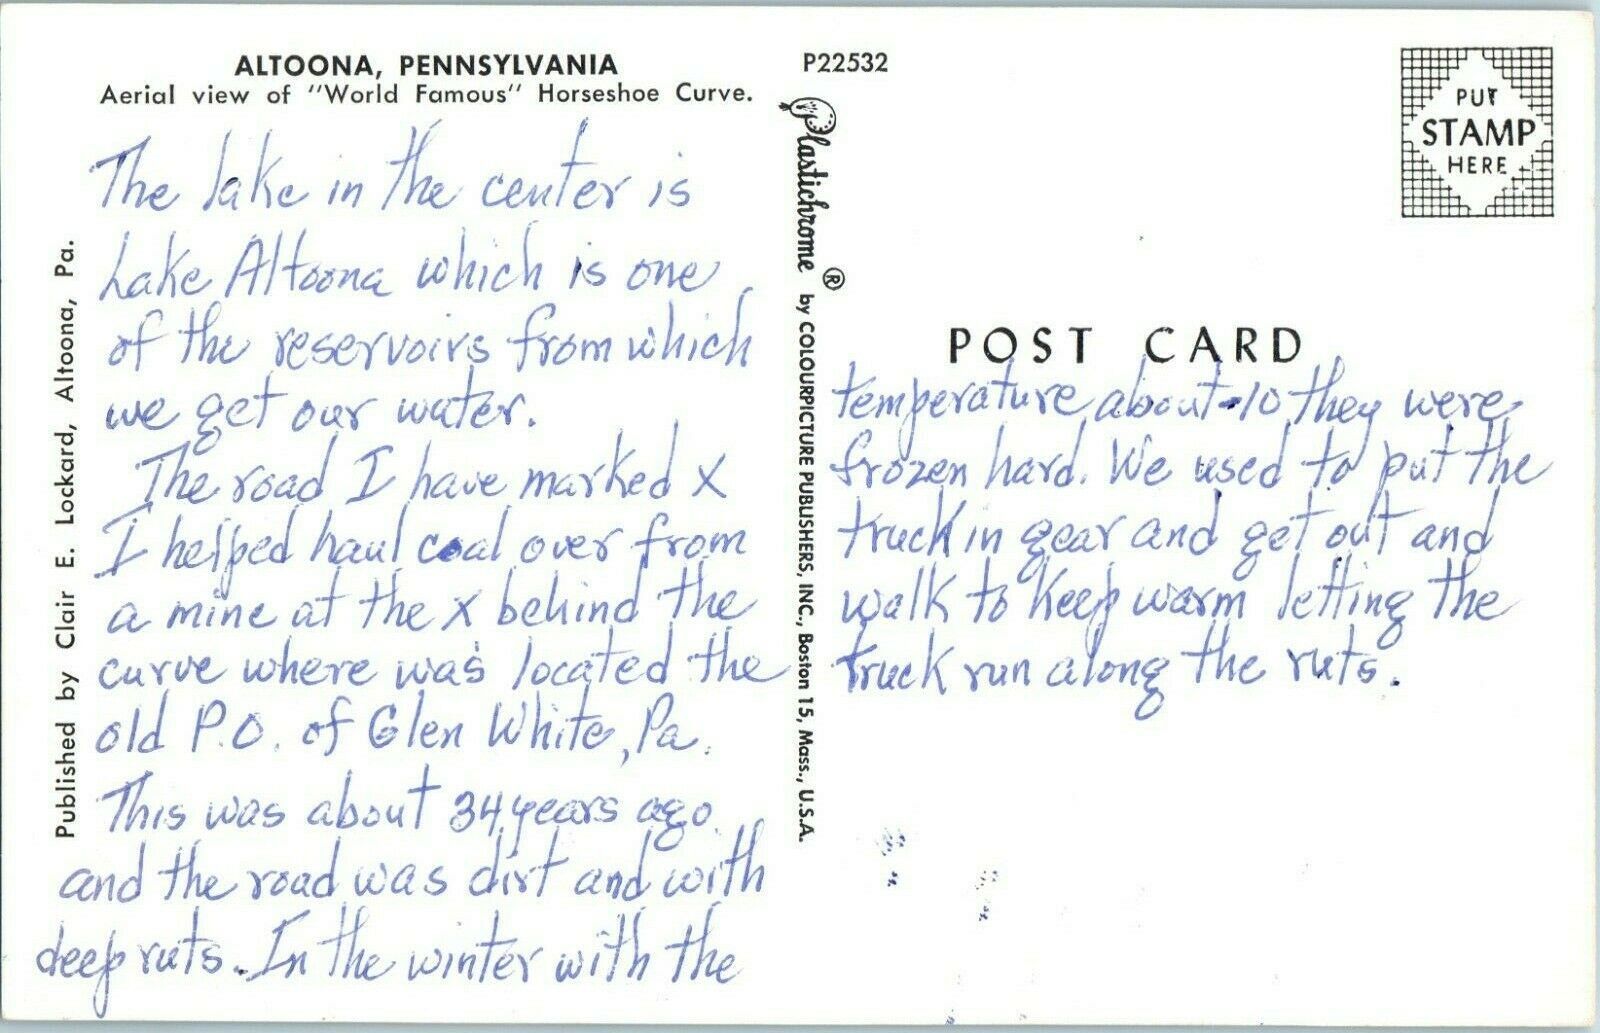 ALTOONA, PENNSYLVANIA
Aerial view of "World Famous" Horseshoe Curve.
The lake in the center is
Lake Altoona which is one
of the reservoirs from which
we get our water.
The road I have marked X
I helped haul coal over from
a mine at the X behind the
curve where was located the
old P.O. of Glen White, Pa.
This was about 34 years ago
and the road was dirt and with
deep ruts. In the winter with the
Published by Clair E. Lockard, Altoona, Pa.
P22532
Plastichrome ® by COLOURPICTURE PUBLISHERS, INC., Boston 15, Mass., U.S.A.
PUT
STAMP
HERE
POST CARD
temperature about -10 they were
frozen hard. We used to put the
truck in gear and get out and
walk to keep warm letting the
truck run along the ruts.